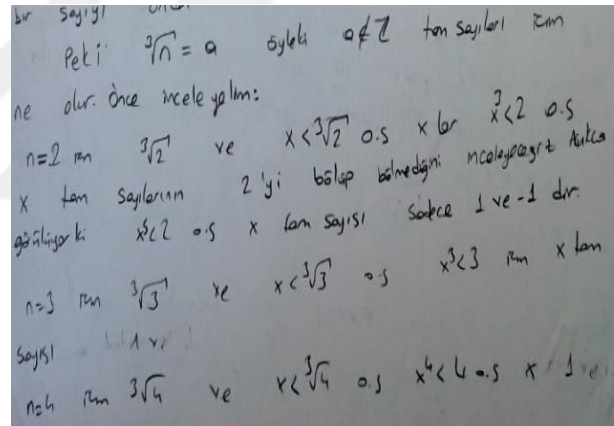 bir sayıyı
Peki ∛n = a öyleki a∉Z tam sayıları için
ne olur. Önce inceleyelim:
n=2 için ∛2 ve x<∛2 o.ş x ler x³<2 o.ş
x tam sayılarının 2'yi bölüp bölmediğini inceleyeceğiz
görülüyor ki x³<2 o.ş x tam sayısı sadece 1 ve -1 dir.
n=3 için ∛3 ve x<∛3 o.ş x³<3 için x tam
sayısı 1 ve
n=4 için ∛4 ve x<∛4 o.ş x⁴<4 o.ş x 1 ve